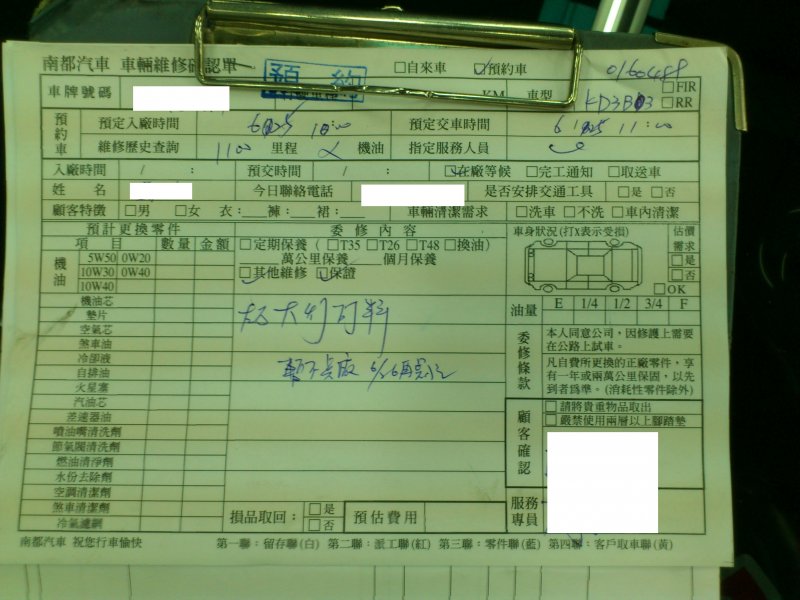 南都汽車 車輛維修確認單 預約 □自來車 ☑預約車 0160488
車牌號碼 KM 車型 KD3B03 □FIR □RR
預約車 預定入廠時間 6/25 10:00 預定交車時間 6/25 11:00
維修歷史查詢 1100 里程 機油 指定服務人員
入廠時間 / : 預交時間 / : ☑在廠等候 □完工通知 □取送車
姓名 今日聯絡電話 是否安排交通工具 □是 □否
顧客特徵 □男 □女 衣:___褲:___裙:___ 車輛清潔需求 □洗車 □不洗 □車內清潔
預計更換零件 委修內容 車身狀況(打X表示受損) 估價需求 □是 □否
項目 數量 金額 □定期保養(□T35 □T26 □T48 □換油)
機油 5W50 0W20 ____萬公里保養____個月保養
10W30 0W40 ☑其他維修 ☑保證
10W40 □OK
機油芯 油量 E 1/4 1/2 3/4 F
墊片
空氣芯
煞車油
冷卻液
自排油
火星塞
汽油芯
差速器油
噴油嘴清洗劑
節氣閥清洗劑
燃油清淨劑
水份去除劑
空調清潔劑
煞車清潔劑
冷氣濾網
委修條款 本人同意公司,因修護上需要在公路上試車。
凡自費所更換的正廠零件,享有一年或兩萬公里保固,以先到者為準。(消耗性零件除外)
顧客確認 □請將貴重物品取出
□嚴禁使用兩層以上腳踏墊
服務專員
損品取回: □是 □否 預估費用
南都汽車 祝您行車愉快 第一聯:留存聯(白) 第二聯:派工聯(紅) 第三聯:零件聯(藍) 第四聯:客戶取車聯(黃)